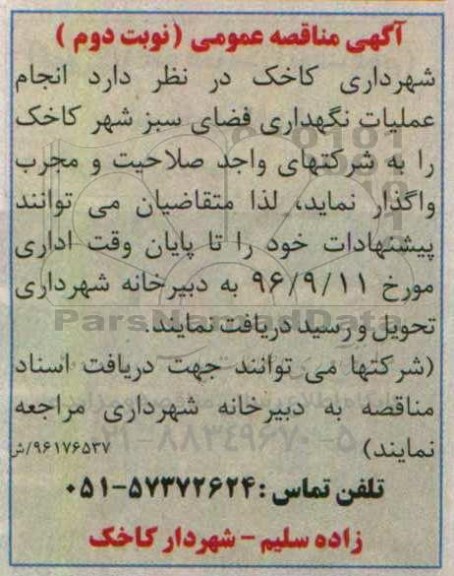 آگهی مناقصه عمومی (نوبت دوم)
شهرداری کاخک در نظر دارد انجام
عملیات نگهداری فضای سبز شهر کاخک
را به شرکتهای واجد صلاحیت و مجرب
واگذار نماید، لذا متقاضیان می توانند
پیشنهادات خود را تا پایان وقت اداری
مورخ ۹۶/۹/۱۱ به دبیرخانه شهرداری
تحویل و رسید دریافت نمایند.
ParsNamadData
(شرکتها می توانند جهت دریافت اسناد
مناقصه به دبیرخانه شهرداری مراجعه
نمایند) ۹۶۱۷۶۵۳۷/ش
۰۲۱-۸۸۳۴۹۶۷۰-۵
تلفن تماس: ۵۷۳۷۲۶۲۴-۰۵۱
زاده سلیم - شهردار کاخک